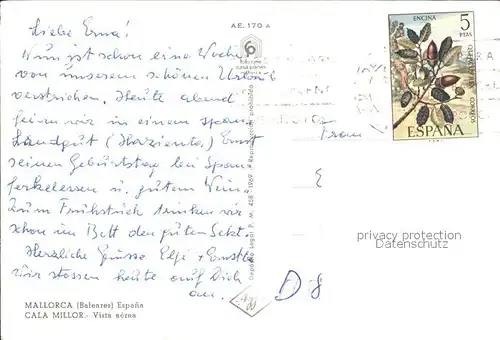 AE. 170 A
Liebe Erna!
Nun ist schon eine Woche
von unserem schönen Urlaub
verstrichen. Heute abend
feiern wir in einem span.
Landgut (Hazienta) Ernst
seinen Geburtstag bei Span
ferkelessen u. gutem Wein
Zum Frühstück trinken wir
schon im Bett den guten Sekt.
Herzliche Grüsse Elfi + Ernstle
wir stossen heute auf Dich
an.
MALLORCA (Baleares) España
CALA MILLOR.- Vista aérea
6
Depósito Legal P. M. 458 - 1969
ENCINA
5
PTAS
CORREOS
ESPAÑA
Frau
E
D-8
privacy protection
Datenschutz